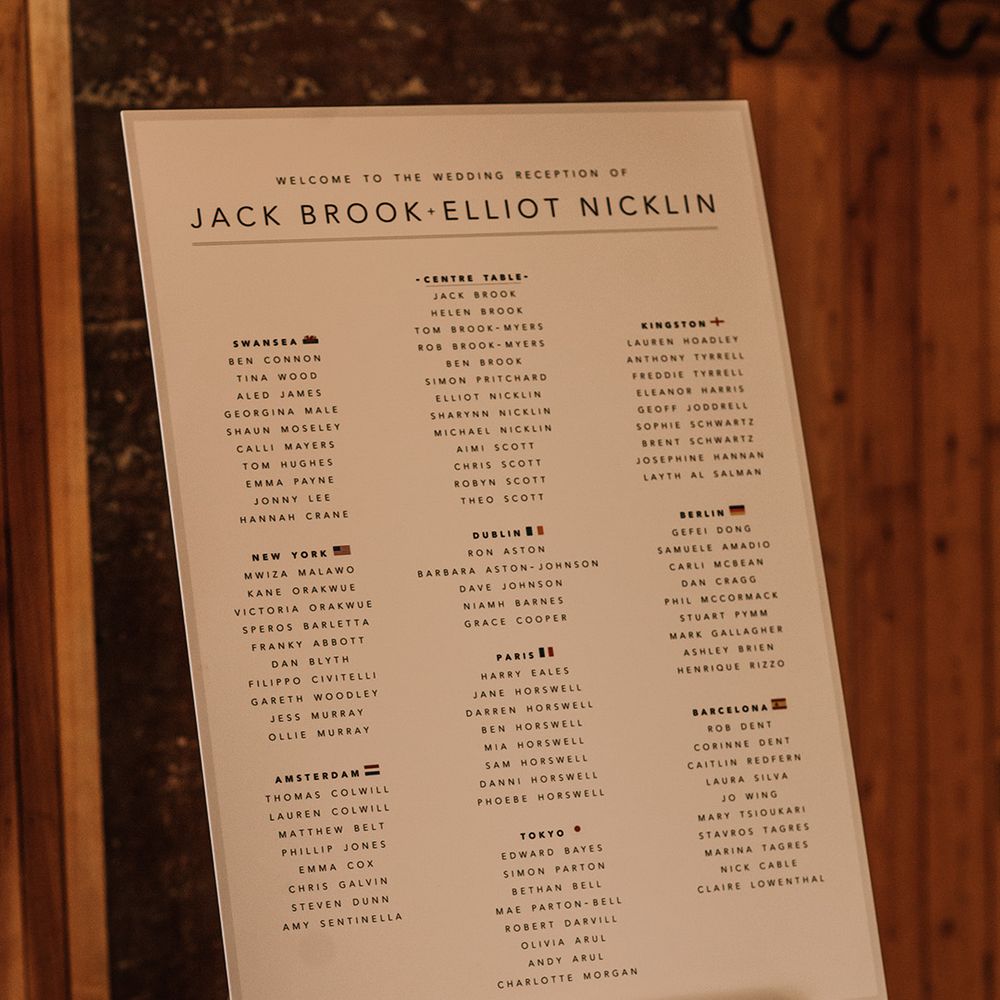 WELCOME TO THE WEDDING RECEPTION OF
JACK BROOK + ELLIOT NICKLIN
SWANSEA
BEN CONNON
TINA WOOD
ALED JAMES
GEORGINA MALE
SHAUN MOSELEY
CALLI MAYERS
TOM HUGHES
EMMA PAYNE
JONNY LEE
HANNAH CRANE
NEW YORK
MWIZA MALAWO
KANE ORAKWUE
VICTORIA ORAKWUE
SPEROS BARLETTA
FRANKY ABBOTT
DAN BLYTH
FILIPPO CIVITELLI
GARETH WOODLEY
JESS MURRAY
OLLIE MURRAY
AMSTERDAM
THOMAS COLWILL
LAUREN COLWILL
MATTHEW BELT
PHILLIP JONES
EMMA COX
CHRIS GALVIN
STEVEN DUNN
AMY SENTINELLA
-CENTRE TABLE-
JACK BROOK
HELEN BROOK
TOM BROOK-MYERS
ROB BROOK-MYERS
BEN BROOK
SIMON PRITCHARD
ELLIOT NICKLIN
SHARYNN NICKLIN
MICHAEL NICKLIN
AIMI SCOTT
CHRIS SCOTT
ROBYN SCOTT
THEO SCOTT
DUBLIN
RON ASTON
BARBARA ASTON-JOHNSON
DAVE JOHNSON
NIAMH BARNES
GRACE COOPER
PARIS
HARRY EALES
JANE HORSWELL
DARREN HORSWELL
BEN HORSWELL
MIA HORSWELL
SAM HORSWELL
DANNI HORSWELL
PHOEBE HORSWELL
TOKYO
EDWARD BAYES
SIMON PARTON
BETHAN BELL
MAE PARTON-BELL
ROBERT DARVILL
OLIVIA ARUL
ANDY ARUL
CHARLOTTE MORGAN
KINGSTON
LAUREN HOADLEY
ANTHONY TYRRELL
FREDDIE TYRRELL
ELEANOR HARRIS
GEOFF JODDRELL
SOPHIE SCHWARTZ
BRENT SCHWARTZ
JOSEPHINE HANNAN
LAYTH AL SALMAN
BERLIN
GEFEI DONG
SAMUELE AMADIO
CARLI MCBEAN
DAN CRAGG
PHIL MCCORMACK
STUART PYMM
MARK GALLAGHER
ASHLEY BRIEN
HENRIQUE RIZZO
BARCELONA
ROB DENT
CORINNE DENT
CAITLIN REDFERN
LAURA SILVA
JO WING
MARY TSIOUKARI
STAVROS TAGRES
MARINA TAGRES
NICK CABLE
CLAIRE LOWENTHAL